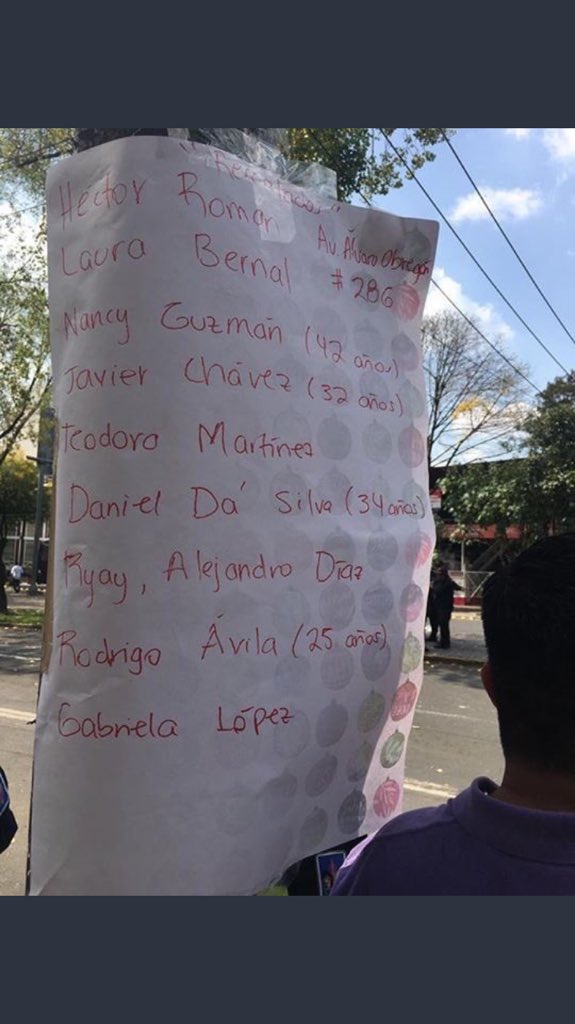 "Rescatados"
Héctor Román
Av. Álvaro Obregón
#286
Laura Bernal
Nancy Guzmán (42 años)
Javier Chávez (32 años)
Teodoro Martínez
Daniel Da' Silva (34 años)
Ryay, Alejandro Díaz
Rodrigo Ávila (25 años)
Gabriela López